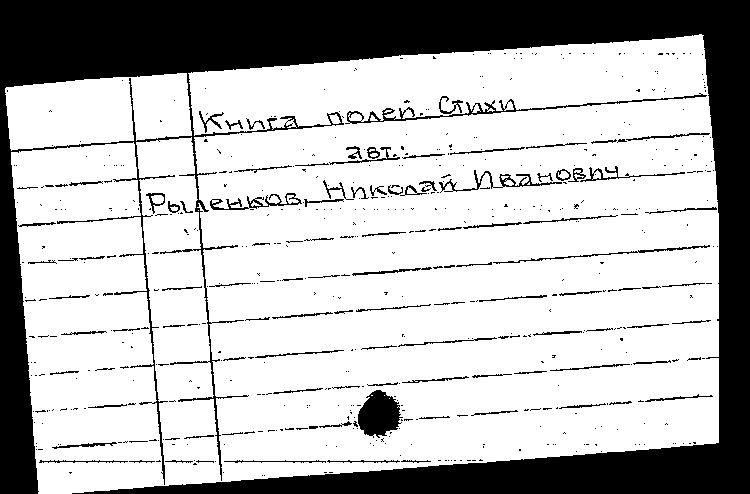 Книга полей. Стихи
авт.:
Рыленков, Николай Иванович.